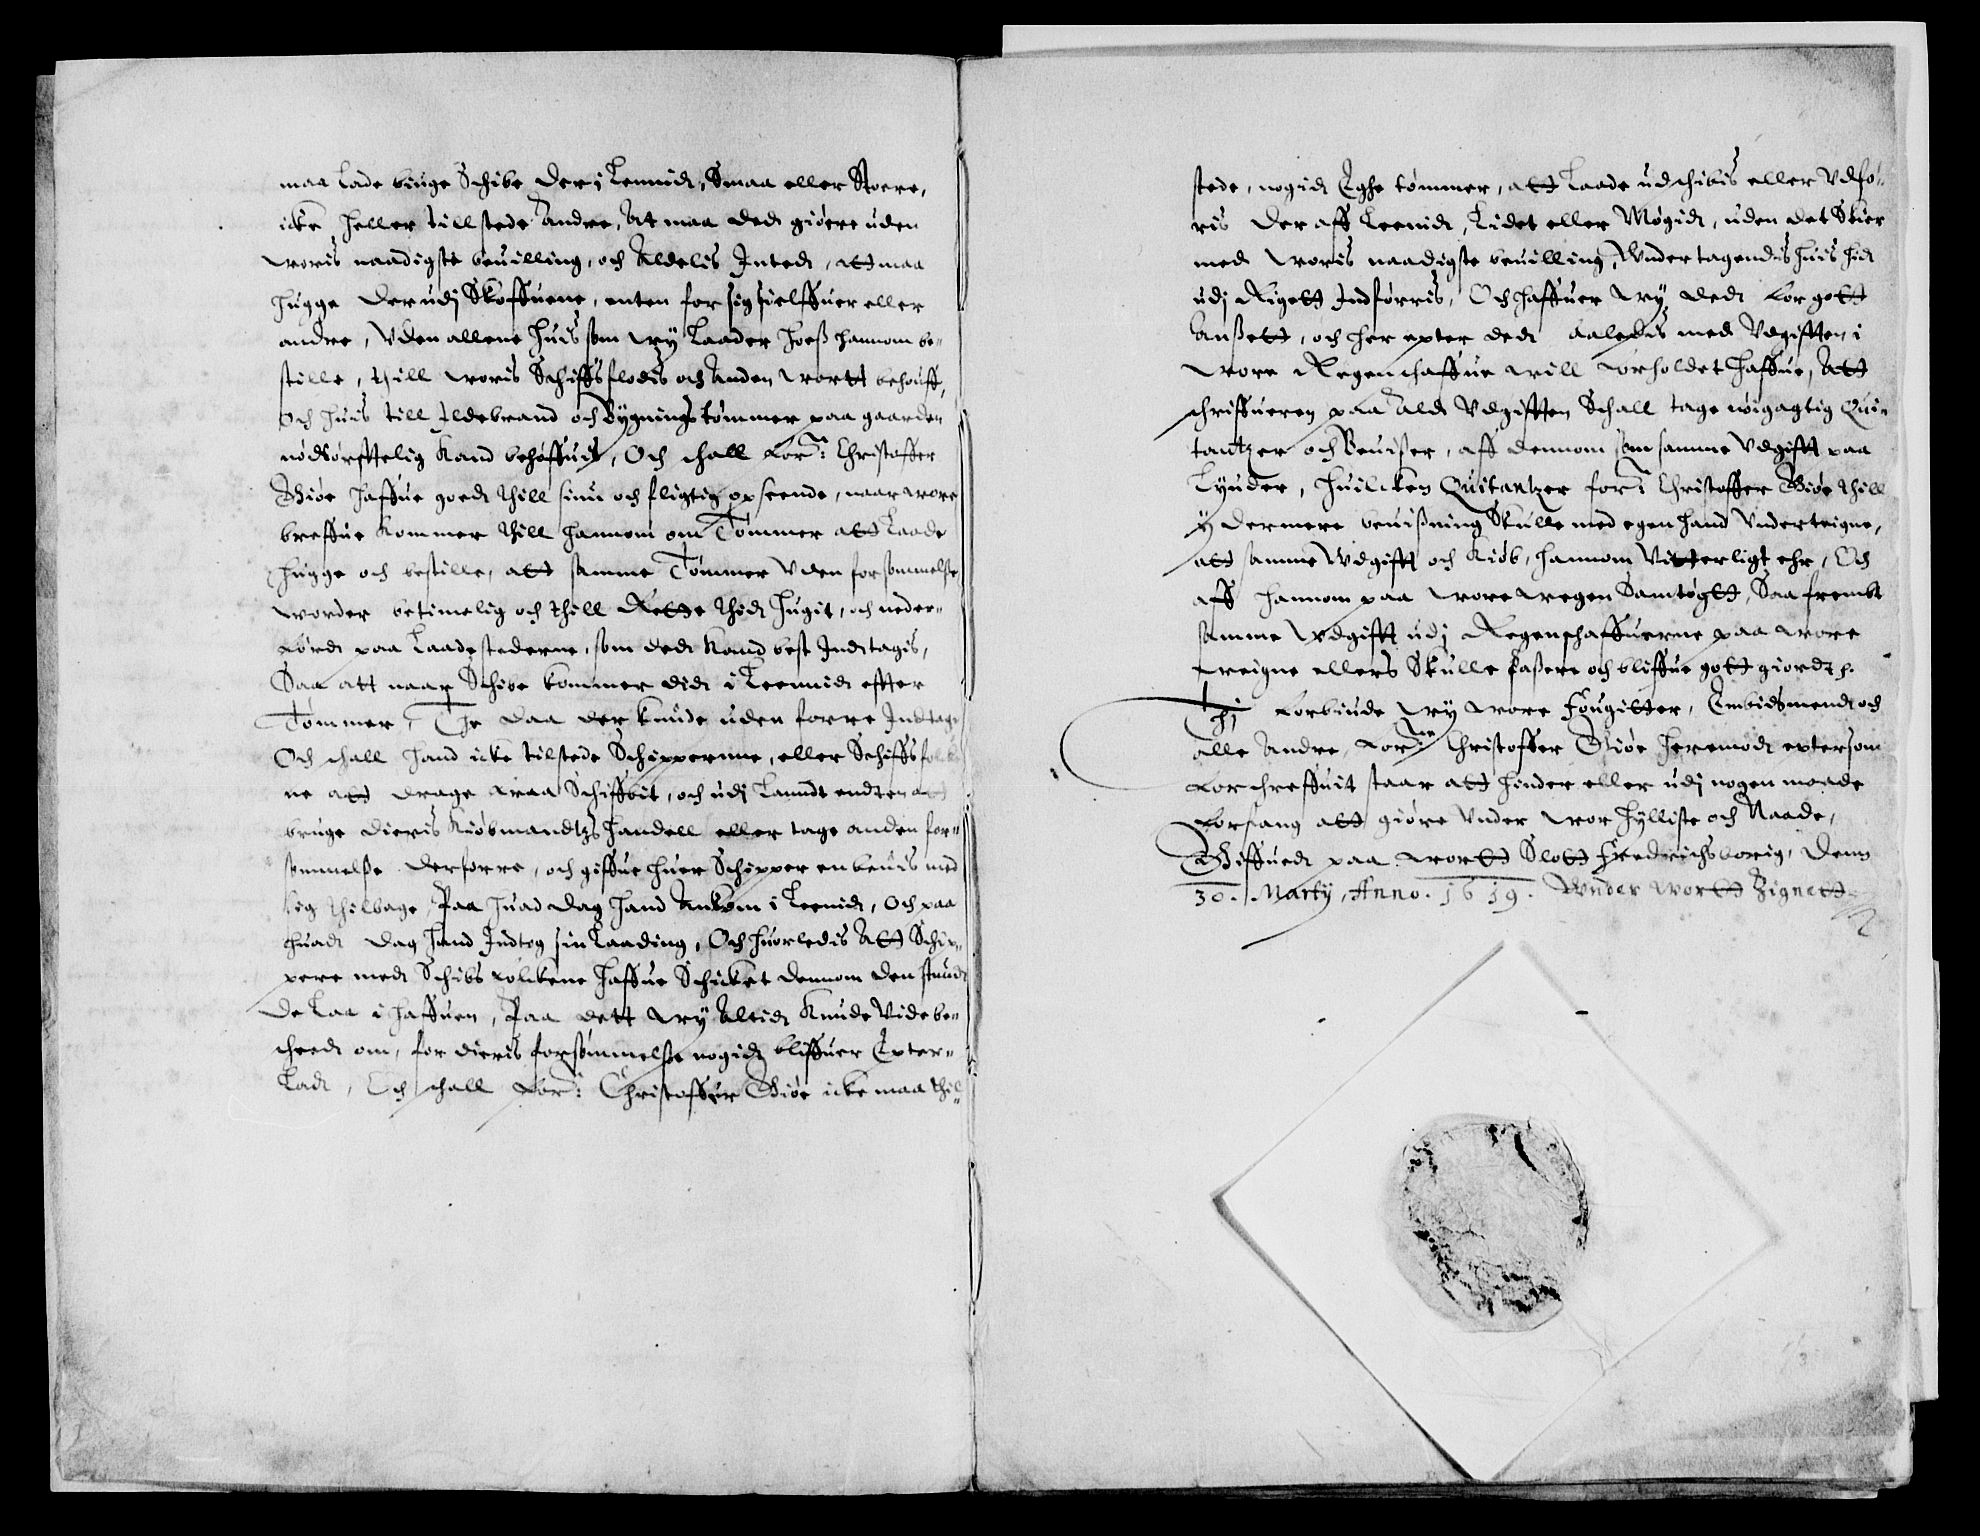 maa lade biuge Schibe der i Lennidt, Smaa eller Stoere,
icke heller tillstede Andre, At maa dedt giøere uden
woris naadigste beuilling, och Aldelis Intedt, att maa
hugge der udj Skoffuene, enten for sig sielffuer eller
andre, Vden allene huis som wy Laader hoeß hannom be-
stille, thill woris Schiffsflodis och Anden wortt behouff,
och huis till Ildebrand och Bygnings tømmer paa gaarden
nødtørfftelig kand behøffuis, Och schall for.ne Christoffer
Giøe haffue goedt thill sinn och fligtig opseende, naar wore
breffue kommer thill hannom om Tømmer att Laade
hugge och bestille, att samme Tømmer Vden forsømmelse
worder betimelig och thill Rette thidt hugit, och neder-
fördt paa Laadestederne, som dedt kand best Indtagis,
Saa att naar Schibe kommer didt i Leennidt effter
Tømmer, The daa der kunde uden forre Indtagis
Och schall hand icke tilstede Schippernne, eller Schiffsfolcke
ne att drage fraa Schiffbit, och udj Lanndt endten att
bruge dieris Kiöbmandtzs handell eller tage anden for-
sømmelse derforre, och giffue huer Schipper en beuis med
sig thilbage, Paa huad dag hand Ankom i Leenidt, Och paa
huadt dag hand Indtog sin Laading, Och huorledis Att Schip-
pere medt Schibs folckene haffue Schicket dennom den stund
de Laa i haffuen, Paa dett wy Altidt kunde Vide be-
scheedt om, for dieris forsømmelse nogidt bliffuer Epter-
Ladt, Och schall for.ne Christoffer Giøe icke maa thil-
stede, nogidt Eghe tømmer, att Laade udschibis eller Vdfö-
ris der aff Leenidt, Lidet eller Møgidt, uden det Skier
med woris naadigste beuilling, Wndertagendis huis hidt
udj Rigett Indførris, Och haffuer wy dedt for gott
Anßett, och her epter dedt saaledis med Vdgifften i
wore Regenschaffue will forholdet haffue, Att
schriffueren paa Aldt Vdgifften Schall tage nøigagtig Qui-
tantzer och Beuißer, aff dennom som samme Vdgifft paa
Lyuder, huilcken Quitantzer for.ne Christoffer Giøe thill
ydermere beuißning Skulle med egen hand Vnderteigne,
att samme Wdgifft och Kiöb, hannom Vitterligt ehr, Och
aff hannom paa wore wegen Samtøgtt, Saa frembt
samme Wdgifft udj Regenschaffuerne paa wore
weigne ellers Skulle paßere och bliffue gott giordt p.
Thj forbiude wy wore Fougitter, Embidsmend och
alle Andre, for.ne Christoffer Giøe heremodt eptersom
forschreffuit staar att hinder eller udj nogen maade
forfang att giøre Vnder wor hylliste och Naade,
Giffuedt paa wortt Slott Fredrichsborig, Denn
30. Marty, Anno. 1619. Wnder wortt Zignett